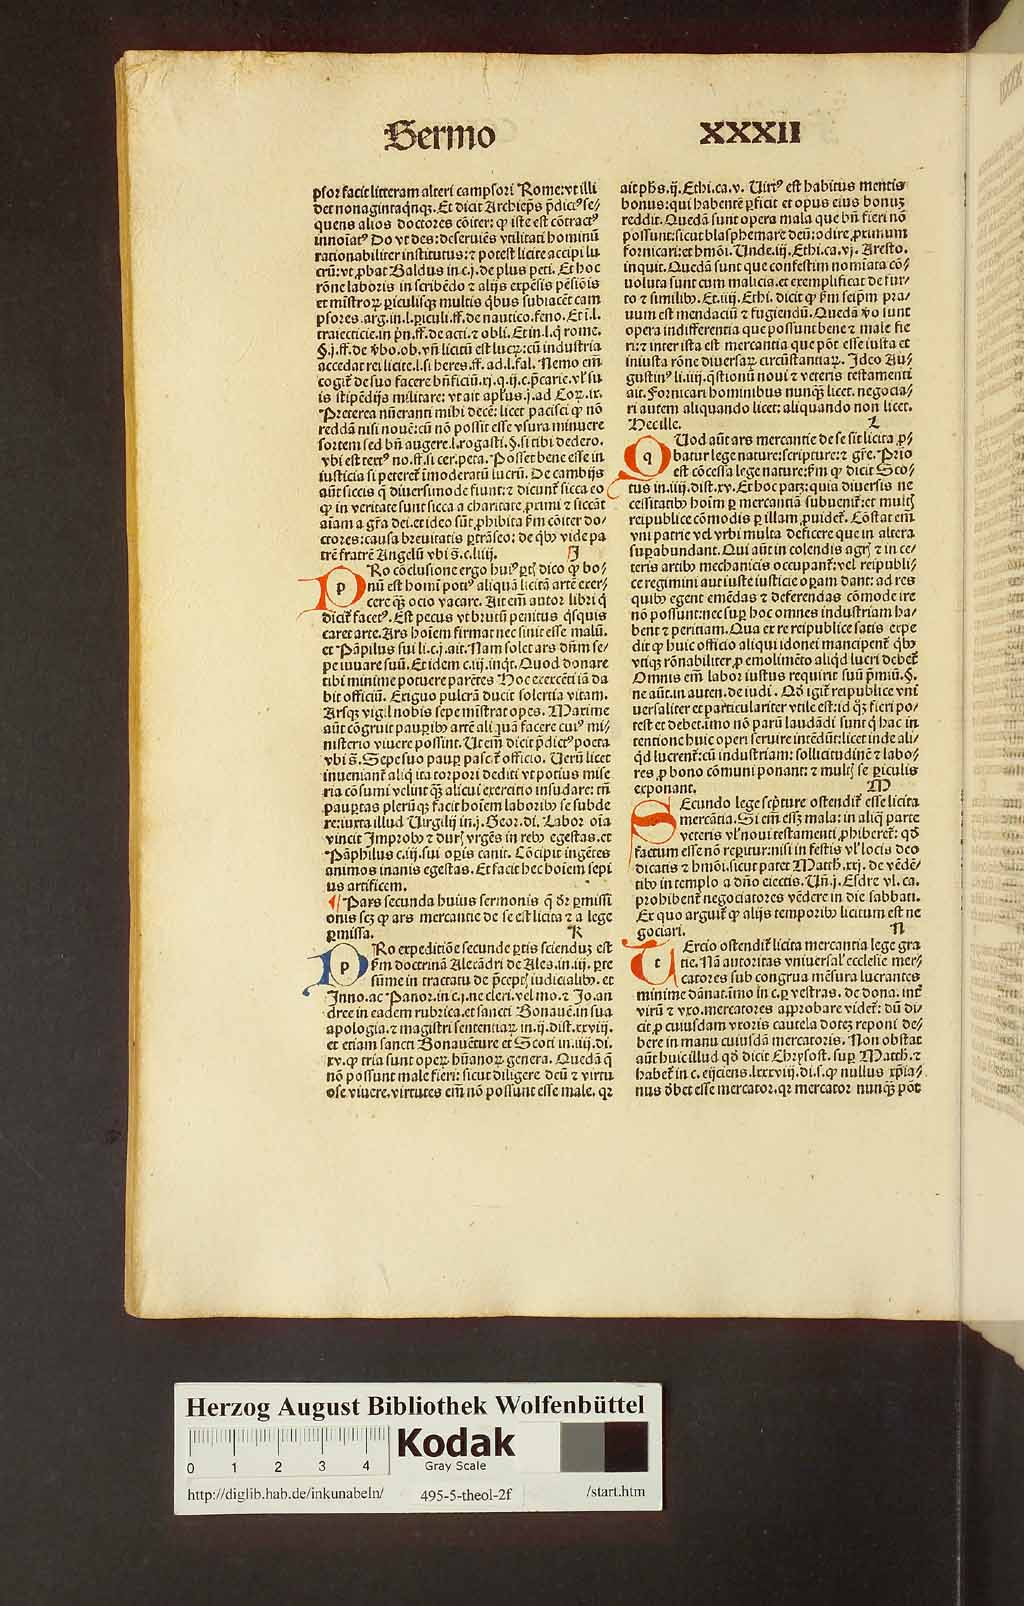 Sermo XXXII
psor facit litteram alteri campsori Rome: vt illi
det nonagintaqnqꝫ. Et dicit Archiep̄s p̄dictꝰ se⸗
quens alios doctores cōiter: ꝙ iste est cōtractꝰ
innoīatꝰ Do vt des: deseruiēs vtilitati hominū
rationabiliter institutus: ⁊ potest licite accipi lu
crū: vt ꝓbat Baldus in.c.j. de plus peti. Et hoc
rōne laboris in scribēdo ⁊ alijs expēsis pēsiōis
et mīstroꝝ ꝑiculisqꝫ multis qͥbus subiacēt cam
psores. arg. in.l. ꝑiculi. ff. de nautico. feno. Et ī.l.
traiecticie. in pͥn. ff. de acti. ⁊ obli. Et in.l. q̄ rome.
§.j. ff. de ꝟbo. ob. vn̄ licitū est lucꝝ: cū industria
accedat rei licite. l. si heres. ff. ad.l. fal. Nemo em̄
cogit̄ de suo facere bn̄ficiū. xj. q. ij. c. p̄carie. vl̓ su
is stipēdijs militare: vt ait apl̄us. j. ad Coꝝ. ix.
Preterea nūeranti mihi decē: licet pacisci ꝙ nō
reddā nisi nouē: cū nō possit esse vsura minuere
sortem sed bn̄ augere. l. rogasti. §. si tibi dedero.
vbi est textꝰ no. ff. si cer. peta. Posset bene esse in
iusticia si peteret̄ īmoderatū lucrū. De cambijs
aūt siccis q̄ diuersimode fiunt: ⁊ dicunt̄ sicca eo
ꝙ in veritate sunt sicca a charitate ꝓximi ⁊ siccāt
aīam a gr̄a dei. et ideo sūt ꝓhibita ẜm cōiter do⸗
ctores: causa breuitatis ꝑtrāseo: de qͥbꝰ vide pa
trē fratrē Angelū vbi s̄. c. liiij. J
PRo cōclusione ergo huiꝰ ꝑtꝭ dico ꝙ bo⸗
nū est homī potiꝰ aliquā licitā artē exer⸗
cere qꝫ ocio vacare. Ait em̄ autor libri q̄
dicit̄ facetꝰ. Est pecus vt brutū penitus qͥsquis
caret arte. Ars hoīem firmat nec sinit esse malū.
et Pāpilus sui li. c.j. ait. Nam solet ars dn̄m se⸗
pe iuuare suū. Et idem c. iij. inqͥt. Quod donare
tibi minime potuere parētes Hoc exercēti iā da
bit officiū. Exiguo pulcrā ducit solertia vitam.
Arsqꝫ vigil nobis sepe mīstrat opes. Maxime
aūt cōgruit pauꝑibꝰ artē aliquā facere cuiꝰ mi⸗
nisterio viuere possint. Ut em̄ dicit p̄dictꝰ poeta
vbi s̄. Sepe suo pauꝑ pascit̄ officio. Uerū licet
inueniant̄ aliq̄ ita torpori dediti vt potius mise
ria cōsumi velint qꝫ alicui exercitio insudare: tn̄
pauꝑtas plerūqꝫ facit hoīem laboribꝰ se subde
re: iuxta illud Virgilij in.j. Geor. di. Labor oīa
vincit Improbꝰ ⁊ durꝭ vrgēs in rebꝰ egestas. et
Pāphilus c. iij. sui oꝑis canit. Cōcipit ingētes
animos inanis egestas. Et facit hec hoīem sepi
us artificem.
¶ Pars secunda huius sermonis q̄ dr̄ ꝑmissi
onis scꝫ ꝙ ars mercantie de se est licita ⁊ a lege
ꝑmissa. K
PRo expeditiōe secunde ꝑtis sciendū est
ẜm doctrinā Alexādri de Ales. in. iij. ꝑte
sūme in tractatu de p̄ceptꝭ iudicialibꝰ. et
Inno. ac Panor. in c.j. ne cleri. vel mo. ⁊ Jo. an
dree in eadem rubrica. et sancti Bonauē. in sua
apologia. ⁊ magistri sententiaꝝ in. ij. dist. xxviij.
et etiam sancti Bonauēture et Scoti in. iiij. di.
xv. ꝙ tria sunt opeꝝ hūanoꝝ genera. Quedā q̄
nō possunt male fieri: sicut diligere deū ⁊ virtu
ose viuere. virtutes em̄ nō possunt esse male. qꝛ
ait ph̄s. ij. Ethi. ca. v. Uirtꝰ est habitus mentis
bonus: qui habentē ꝑficit et opus eius bonuꝫ
reddit. Quedā sunt opera mala que bn̄ fieri nō
possunt: sicut blasphemare deū: odire ꝓximum
fornicari: et hmōi. Unde. iij. Ethi. ca. vj. Aresto.
inquit. Quedā sunt que confestim nomīata cō⸗
uoluta sunt cum malicia. et exemplificat de fur⸗
to ⁊ similibꝰ. Et. iiij. Ethi. dicit ꝙ ẜm seip̄m pra⸗
uum est mendaciū ⁊ fugiendū. Quedā ꝟo sunt
opera indifferentia que possunt bene ⁊ male fie
ri: ⁊ inter ista est mercantia que pōt esse iusta et
iniusta rōne diuersaꝝ circūstantiaꝝ. Ideo Au⸗
gustinꝰ li. iiij. qōnū noui ⁊ veteris testamenti
ait. Fornicari hominibus nunqꝫ licet. negocia⸗
ri autem aliquando licet: aliquando non licet.
Hec ille. L
QUod aūt ars mercantie de se sit licita ꝓ⸗
batur lege nature: scripture: ⁊ gr̄e. Prio
est cōcessa lege nature: ẜm ꝙ dicit Sco⸗
tus in. iiij. dist. xv. Et hoc patꝫ: quia diuersis ne
cessitatibꝰ hoīm ꝑ mercantiā subuenit̄: et multꝭ
reipublice cōmodis ꝑ illam ꝓuidet̄. Cōstat em̄
vni patrie vel vrbi multa deficere que in altera
suꝑabundant. Qui aūt in colendis agrꝭ ⁊ in ce⸗
teris artibꝰ mechanicis occupant̄: vel reipubli⸗
ce regimini aut iuste iusticie oꝑam dant: ad res
quibꝰ egent emēdas ⁊ deferendas cōmode ire
nō possunt: nec suꝑ hoc omnes industriam ha⸗
bent ⁊ peritiam. Qua ex re reipublice satis expe
dit ꝙ huic officio aliqui idonei mancipent̄ qͥbꝰ
vtiqꝫ rōnabiliter ꝓ emolimēto aliqͥd lucri debet̄
Omnis em̄ labor iustus requirit suū p̄miū. §.
ne aūt. in auten. de iudi. Qd̓ igit̄ reipublice vni
uersaliter et particulariter vtile est: id qͥꝫ fieri po⸗
test et debet. imo nō parū laudādi sunt q̄ hac in
tentione huic operi seruire intēdūt: licet inde ali⸗
qͥd lucrent̄: cū industriam: sollicitudinē ⁊ labo⸗
res ꝓ bono cōmuni ponant: ⁊ multꝭ se ꝑiculis
exponant. M
SEcundo lege scpͥture ostendit̄ esse licita
mercātia. Si em̄ esset mala: in aliq̄ parte
veteris vl̓ noui testamenti ꝓhiberet̄: qd̓
factum esse nō reꝑitur: nisi in festis vl̓ locis deo
dicatis ⁊ hmōi. sicut patet Matth. xxj. de vēdē⸗
tibꝰ in templo a dn̄o eiectis. Un̄. j. Esdre vl. ca.
prohibent̄ negociatores vēdere in die sabbati.
Ex quo arguit̄ ꝙ alijs temporibꝰ licitum est ne
gociari. N
TErcio ostendit̄ licita mercantia lege gra
tie. Nā autoritas vniuersal̓ ecclesie mer⸗
catores sub congrua mēsura lucrantes
minime dānat. imo in c. ꝑ vestras. de dona. int̄
virū ⁊ vxo. mercatores approbare videt̄: dū di⸗
cit ꝓ cuiusdam vxoris cautela dotez reponi de⸗
bere in manu cuiusdā mercatoris. Non obstat
aūt huic illud qd̓ dicit Chrysost. suꝑ Matth. ⁊
habet̄ in c. eijciens. lxxxviij. di. s. ꝙ nullus xp̄ia⸗
nus dꝫbet esse mercator. qꝛ mercator nunqꝫ pōt
Herzog August Bibliothek Wolfenbüttel
0 1 2 3 4
Kodak
Gray Scale
http://diglib.hab.de/inkunabeln/ 495-5-theol-2f /start.htm